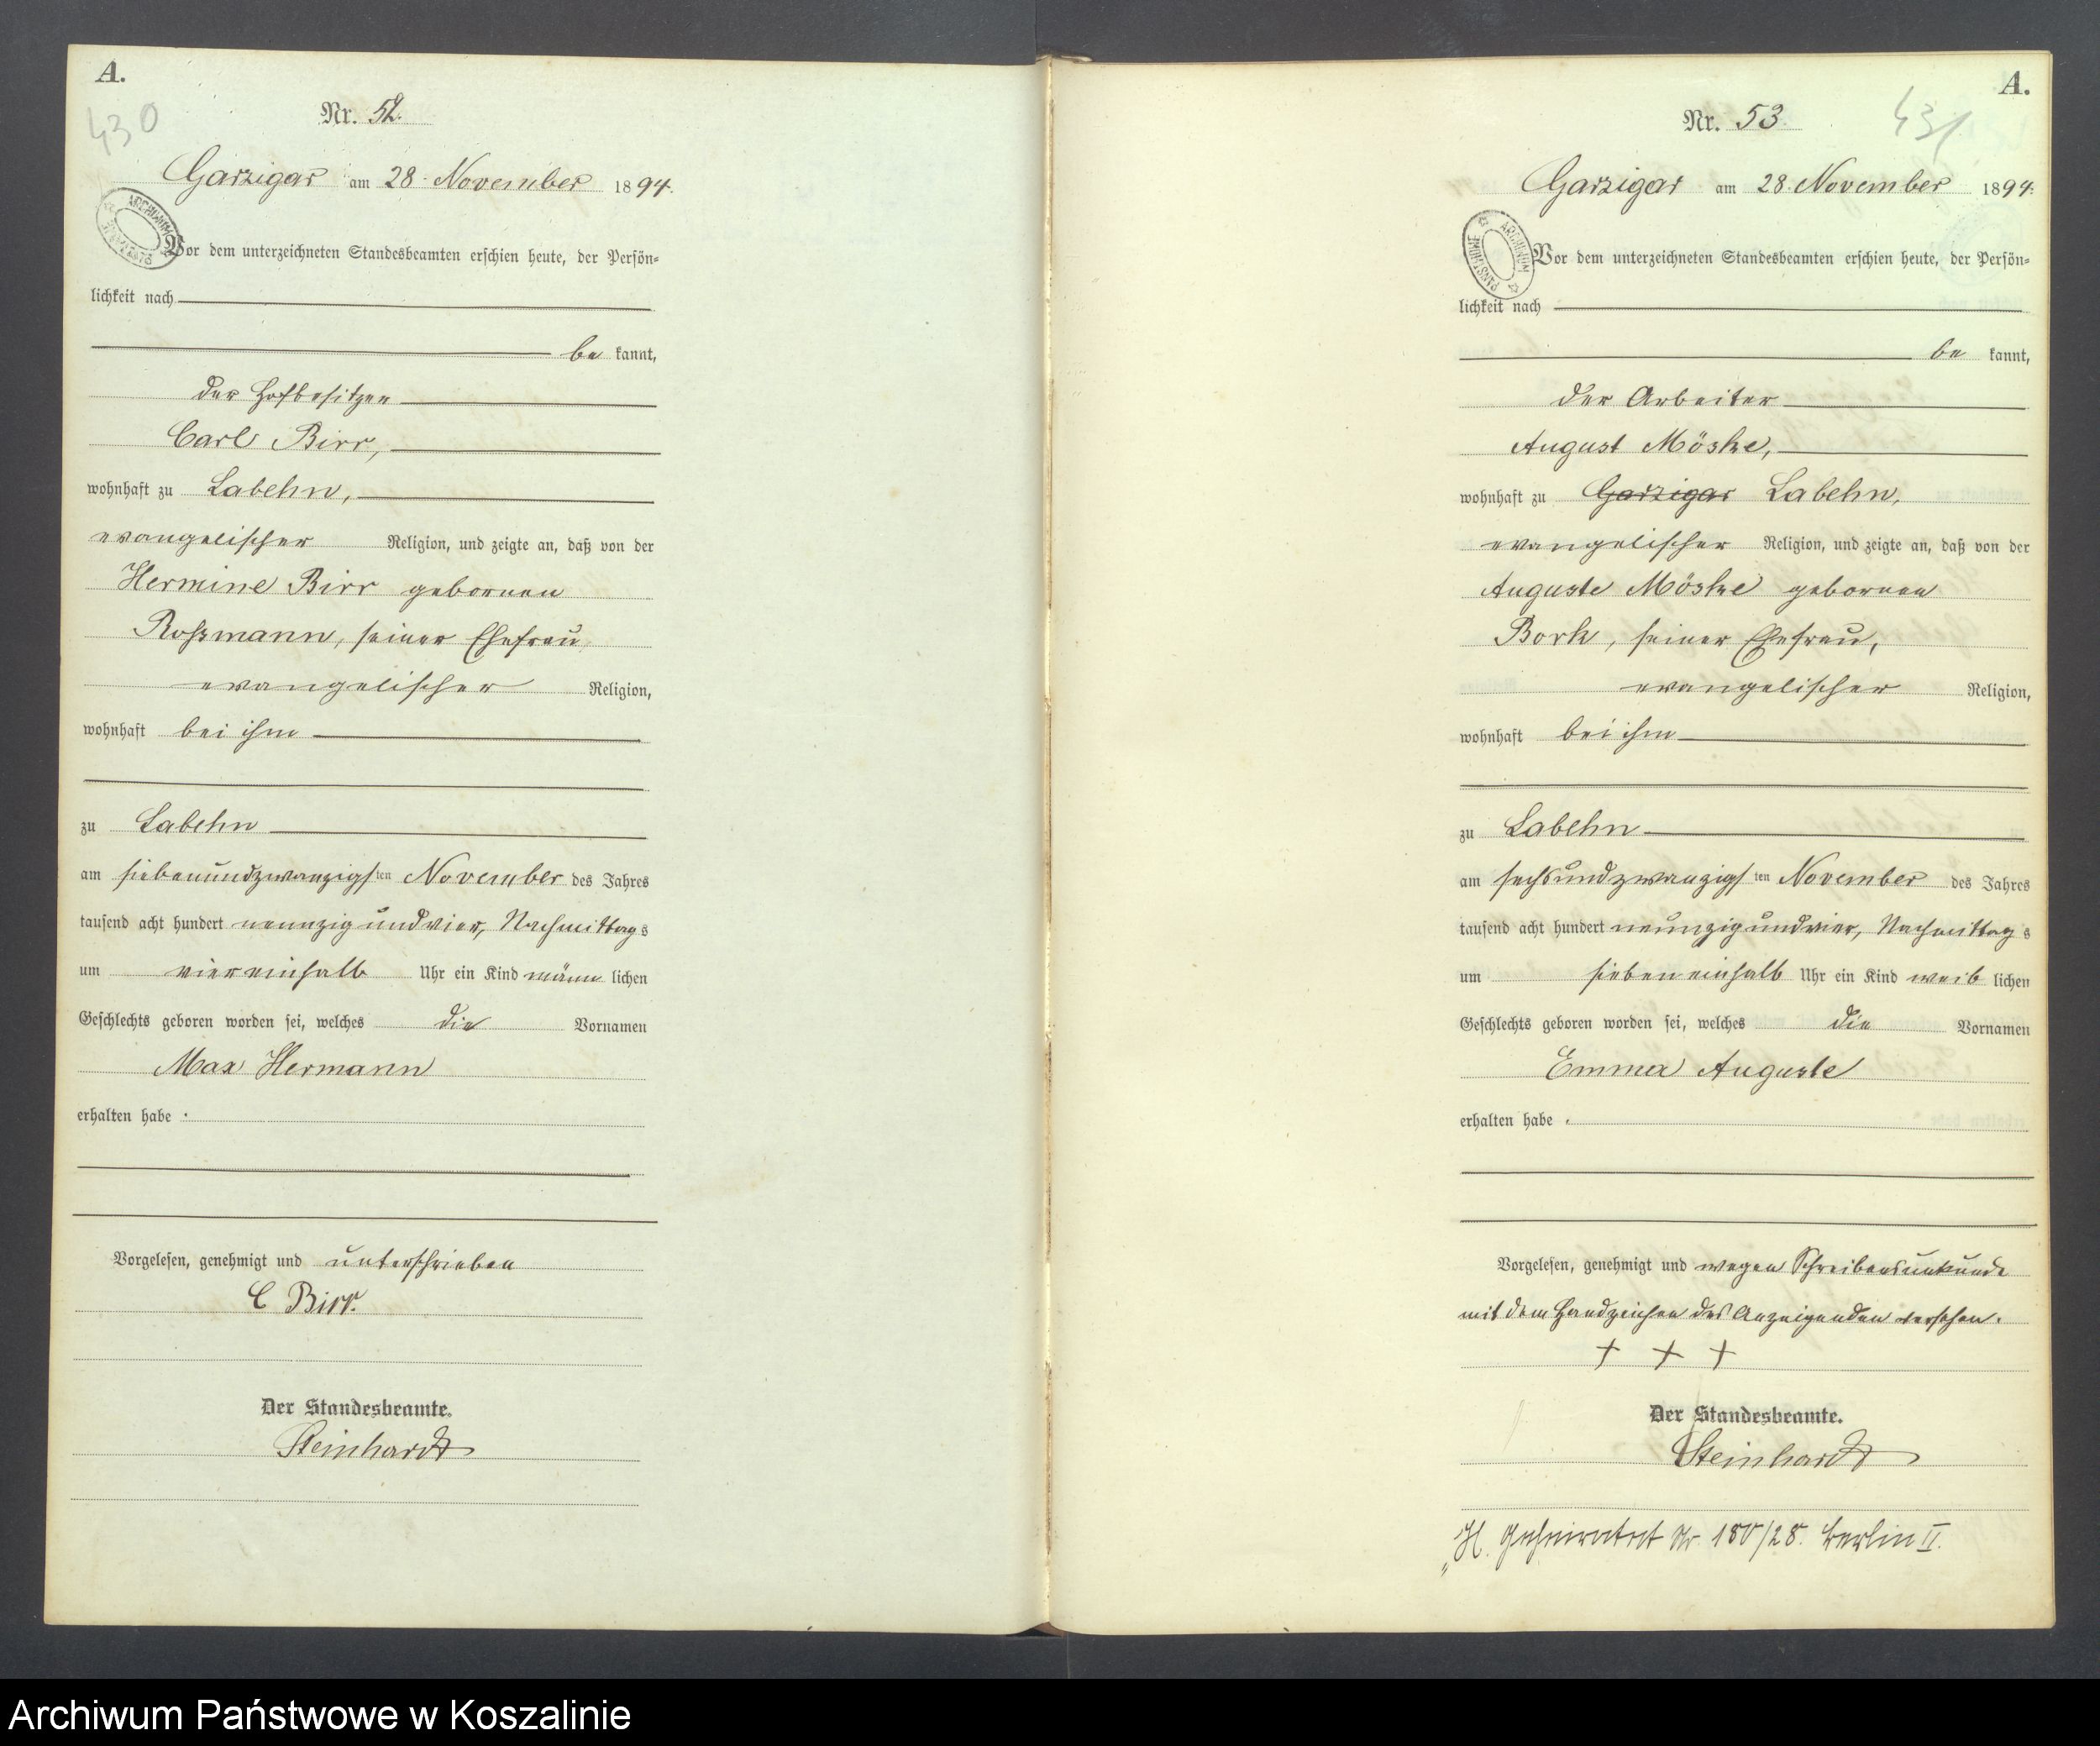 A.
430
Nr. 52.
Garzigar am 28. November 1894.
Vor dem unterzeichneten Standesbeamten erschien heute, der Persön-
lichkeit nach
be kannt,
der Hofbesitzer
Carl Birr,
wohnhaft zu Labehn,
evangelischer Religion, und zeigte an, daß von der
Hermine Birr geborenen
Roßmann, seiner Ehefrau,
evangelischer Religion,
wohnhaft bei ihm
zu Labehn
am siebenundzwanzigsten November des Jahres
tausend acht hundert neunzig und vier, Nachmittags
um viereinhalb Uhr ein Kind männlichen
Geschlechts geboren worden sei, welches die Vornamen
Max Hermann
erhalten habe.
Vorgelesen, genehmigt und unterschrieben
C Birr.
Der Standesbeamte.
Steinhardt
A.
431
Nr. 53.
Garzigar am 28. November 1894.
ARCHIWUM PAŃSTWOWE
Vor dem unterzeichneten Standesbeamten erschien heute, der Persön-
lichkeit nach
be kannt,
der Arbeiter
August Möske,
wohnhaft zu Garzigar Labehn,
evangelischer Religion, und zeigte an, daß von der
Auguste Möske geborenen
Bork, seiner Ehefrau,
evangelischer Religion,
wohnhaft bei ihm
zu Labehn
am sechsundzwanzigsten November des Jahres
tausend acht hundert neunzig und vier, Nachmittags
um siebeneinhalb Uhr ein Kind weiblichen
Geschlechts geboren worden sei, welches die Vornamen
Emma Auguste
erhalten habe.
Vorgelesen, genehmigt und wegen Schreibensunkunde
mit dem Handzeichen des Anzeigenden versehen.
+ + +
Der Standesbeamte.
Steinhardt
H. Geheiratet Nr. 180/28. Berlin II.
Archiwum Państwowe w Koszalinie